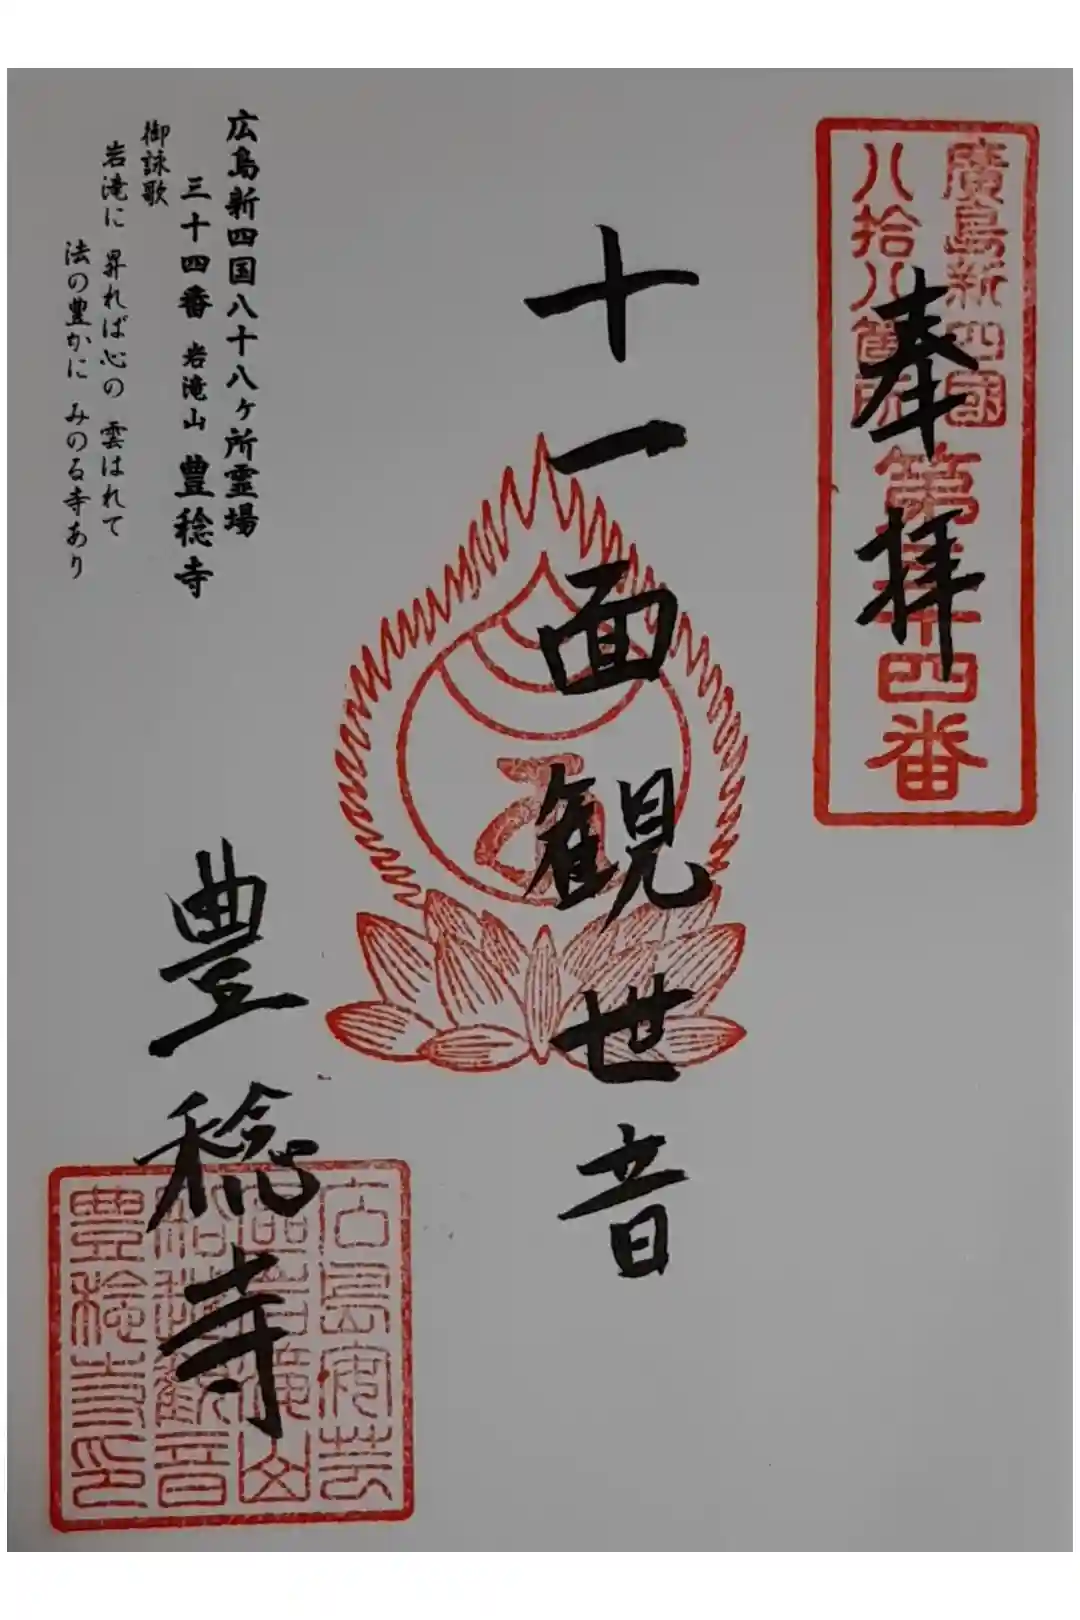 廣島新四國
八拾八箇所
第三十四番
奉拝
十一面観世音
豊稔寺
広島新四国八十八ヶ所霊場
三十四番 岩滝山 豊稔寺
御詠歌
岩滝に 昇れば心の 雲はれて
法の豊かに みのる寺あり
豊稔寺印